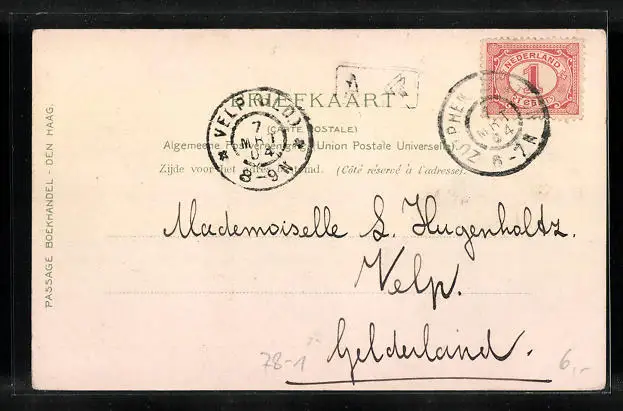 NEDERLAND
1
CENT
BRIEFKAART
(CARTE POSTALE)
Algemeene Postvereeniging Union Postale Universelle
Zijde voor het adres bestemd. (Côté réservé à l'adresse).
VELP (GLD)
7
MRT
04
8-9N
ZUTPHEN
7
MRT
04
6-7N
PASSAGE BOEKHANDEL - DEN HAAG.
Mademoiselle S. Hugenholtz.
Velp.
Gelderland.
78-1
6,-